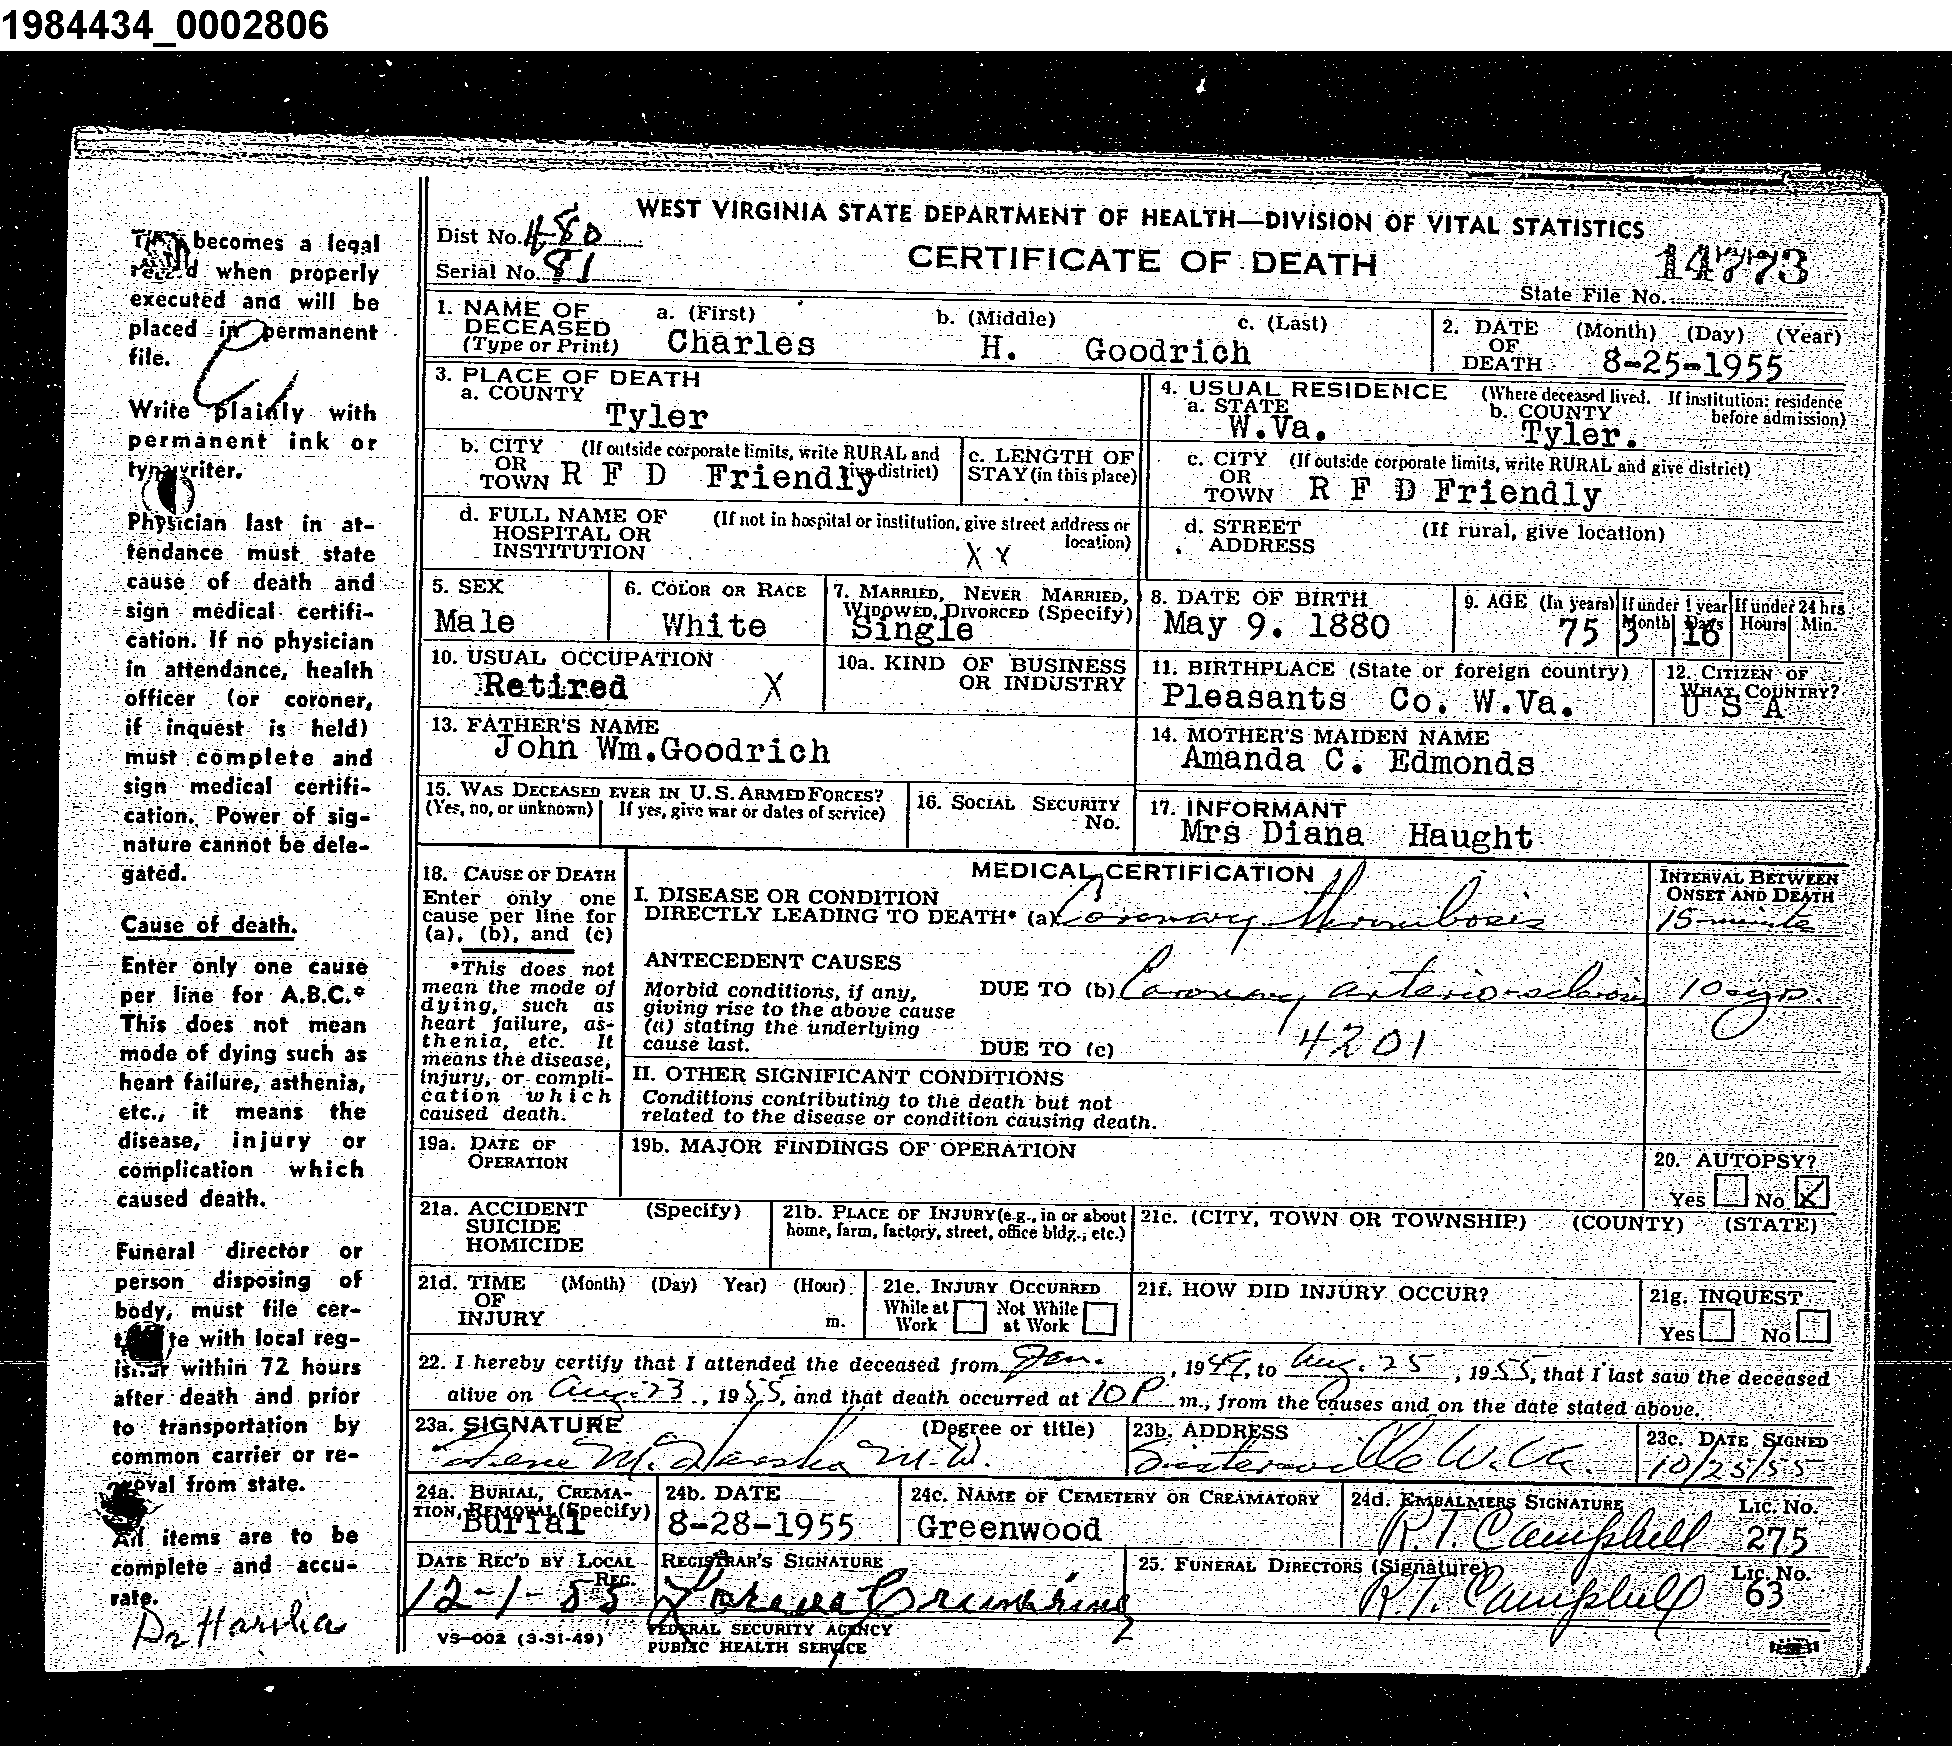 1984434_0002806
WEST VIRGINIA STATE DEPARTMENT OF HEALTH—DIVISION OF VITAL STATISTICS
Dist No. 480
Serial No. 81
CERTIFICATE OF DEATH
14773
State File No.
1. NAME OF DECEASED (Type or Print) a. (First) b. (Middle) c. (Last)
Charles H. Goodrich
2. DATE OF DEATH (Month) (Day) (Year)
8-25-1955
3. PLACE OF DEATH
a. COUNTY
Tyler
4. USUAL RESIDENCE (Where deceased lived. If institution: residence before admission)
a. STATE W.Va. b. COUNTY Tyler.
b. CITY OR TOWN (If outside corporate limits, write RURAL and give district)
R F D Friendly
c. LENGTH OF STAY (in this place)
c. CITY OR TOWN (If outside corporate limits, write RURAL and give district)
R F D Friendly
d. FULL NAME OF HOSPITAL OR INSTITUTION (If not in hospital or institution, give street address or location)
X Y
d. STREET ADDRESS (If rural, give location)
5. SEX
Male
6. COLOR OR RACE
White
7. MARRIED, NEVER MARRIED, WIDOWED, DIVORCED (Specify)
Single
8. DATE OF BIRTH
May 9. 1880
9. AGE (In years) If under 1 year Month Days If under 24 hrs Hours Min.
75 3 16
10. USUAL OCCUPATION
Retired X
10a. KIND OF BUSINESS OR INDUSTRY
11. BIRTHPLACE (State or foreign country)
Pleasants Co. W.Va.
12. CITIZEN OF WHAT COUNTRY?
U S A
13. FATHER'S NAME
John Wm.Goodrich
14. MOTHER'S MAIDEN NAME
Amanda C. Edmonds
15. WAS DECEASED EVER IN U.S. ARMED FORCES?
(Yes, no, or unknown) If yes, give war or dates of service)
16. SOCIAL SECURITY No.
17. INFORMANT
Mrs Diana Haught
18. CAUSE OF DEATH
Enter only one cause per line for (a), (b), and (c)
*This does not mean the mode of dying, such as heart failure, asthenia, etc. It means the disease, injury, or complication which caused death.
MEDICAL CERTIFICATION
INTERVAL BETWEEN ONSET AND DEATH
I. DISEASE OR CONDITION
DIRECTLY LEADING TO DEATH* (a) Coronary thrombosis 15 minute
ANTECEDENT CAUSES
Morbid conditions, if any, giving rise to the above cause (a) stating the underlying cause last.
DUE TO (b) Coronary arterio-sclerosis 10 yrs.
DUE TO (c) 4201
II. OTHER SIGNIFICANT CONDITIONS
Conditions contributing to the death but not
related to the disease or condition causing death.
19a. DATE OF OPERATION
19b. MAJOR FINDINGS OF OPERATION
20. AUTOPSY?
Yes No X
21a. ACCIDENT SUICIDE HOMICIDE (Specify)
21b. PLACE OF INJURY (e.g., in or about home, farm, factory, street, office bldg., etc.)
21c. (CITY, TOWN OR TOWNSHIP) (COUNTY) (STATE)
21d. TIME OF INJURY (Month) (Day) Year) (Hour) m.
21e. INJURY OCCURRED
While at Work Not While at Work
21f. HOW DID INJURY OCCUR?
21g. INQUEST
Yes No
22. I hereby certify that I attended the deceased from Jan. , 1949, to Aug. 25 , 1955, that I last saw the deceased
alive on Aug. 23 , 1955, and that death occurred at 10 P m., from the causes and on the date stated above.
23a. SIGNATURE (Degree or title)
M. Harsha M.D.
23b. ADDRESS
Sistersville W.Va.
23c. DATE SIGNED
10/25/55
24a. BURIAL, CREMATION, REMOVAL (Specify)
Burial
24b. DATE
8-28-1955
24c. NAME OF CEMETERY OR CREAMATORY
Greenwood
24d. EMBALMERS SIGNATURE LIC. NO.
R.T. Campbell 275
DATE REC'D BY LOCAL REG.
12-1-55
REGISTRAR'S SIGNATURE
25. FUNERAL DIRECTORS (Signature) LIC. NO.
R.T. Campbell 63
VS-002 (3-31-49)
FEDERAL SECURITY AGENCY
PUBLIC HEALTH SERVICE
becomes a legal
when properly
executed and will be
placed in permanent
file.
Write plainly with
permanent ink or
typewriter.
Physician last in at-
tendance must state
cause of death and
sign medical certifi-
cation. If no physician
in attendance, health
officer (or coroner,
if inquest is held)
must complete and
sign medical certifi-
cation. Power of sig-
nature cannot be dele-
gated.
Cause of death.
Enter only one cause
per line for A.B.C.*
This does not mean
mode of dying such as
heart failure, asthenia,
etc., it means the
disease, injury or
complication which
caused death.
Funeral director or
person disposing of
body, must file cer-
te with local reg-
istrar within 72 hours
after death and prior
to transportation by
common carrier or re-
moval from state.
All items are to be
complete and accu-
rate.
Dr Harsha